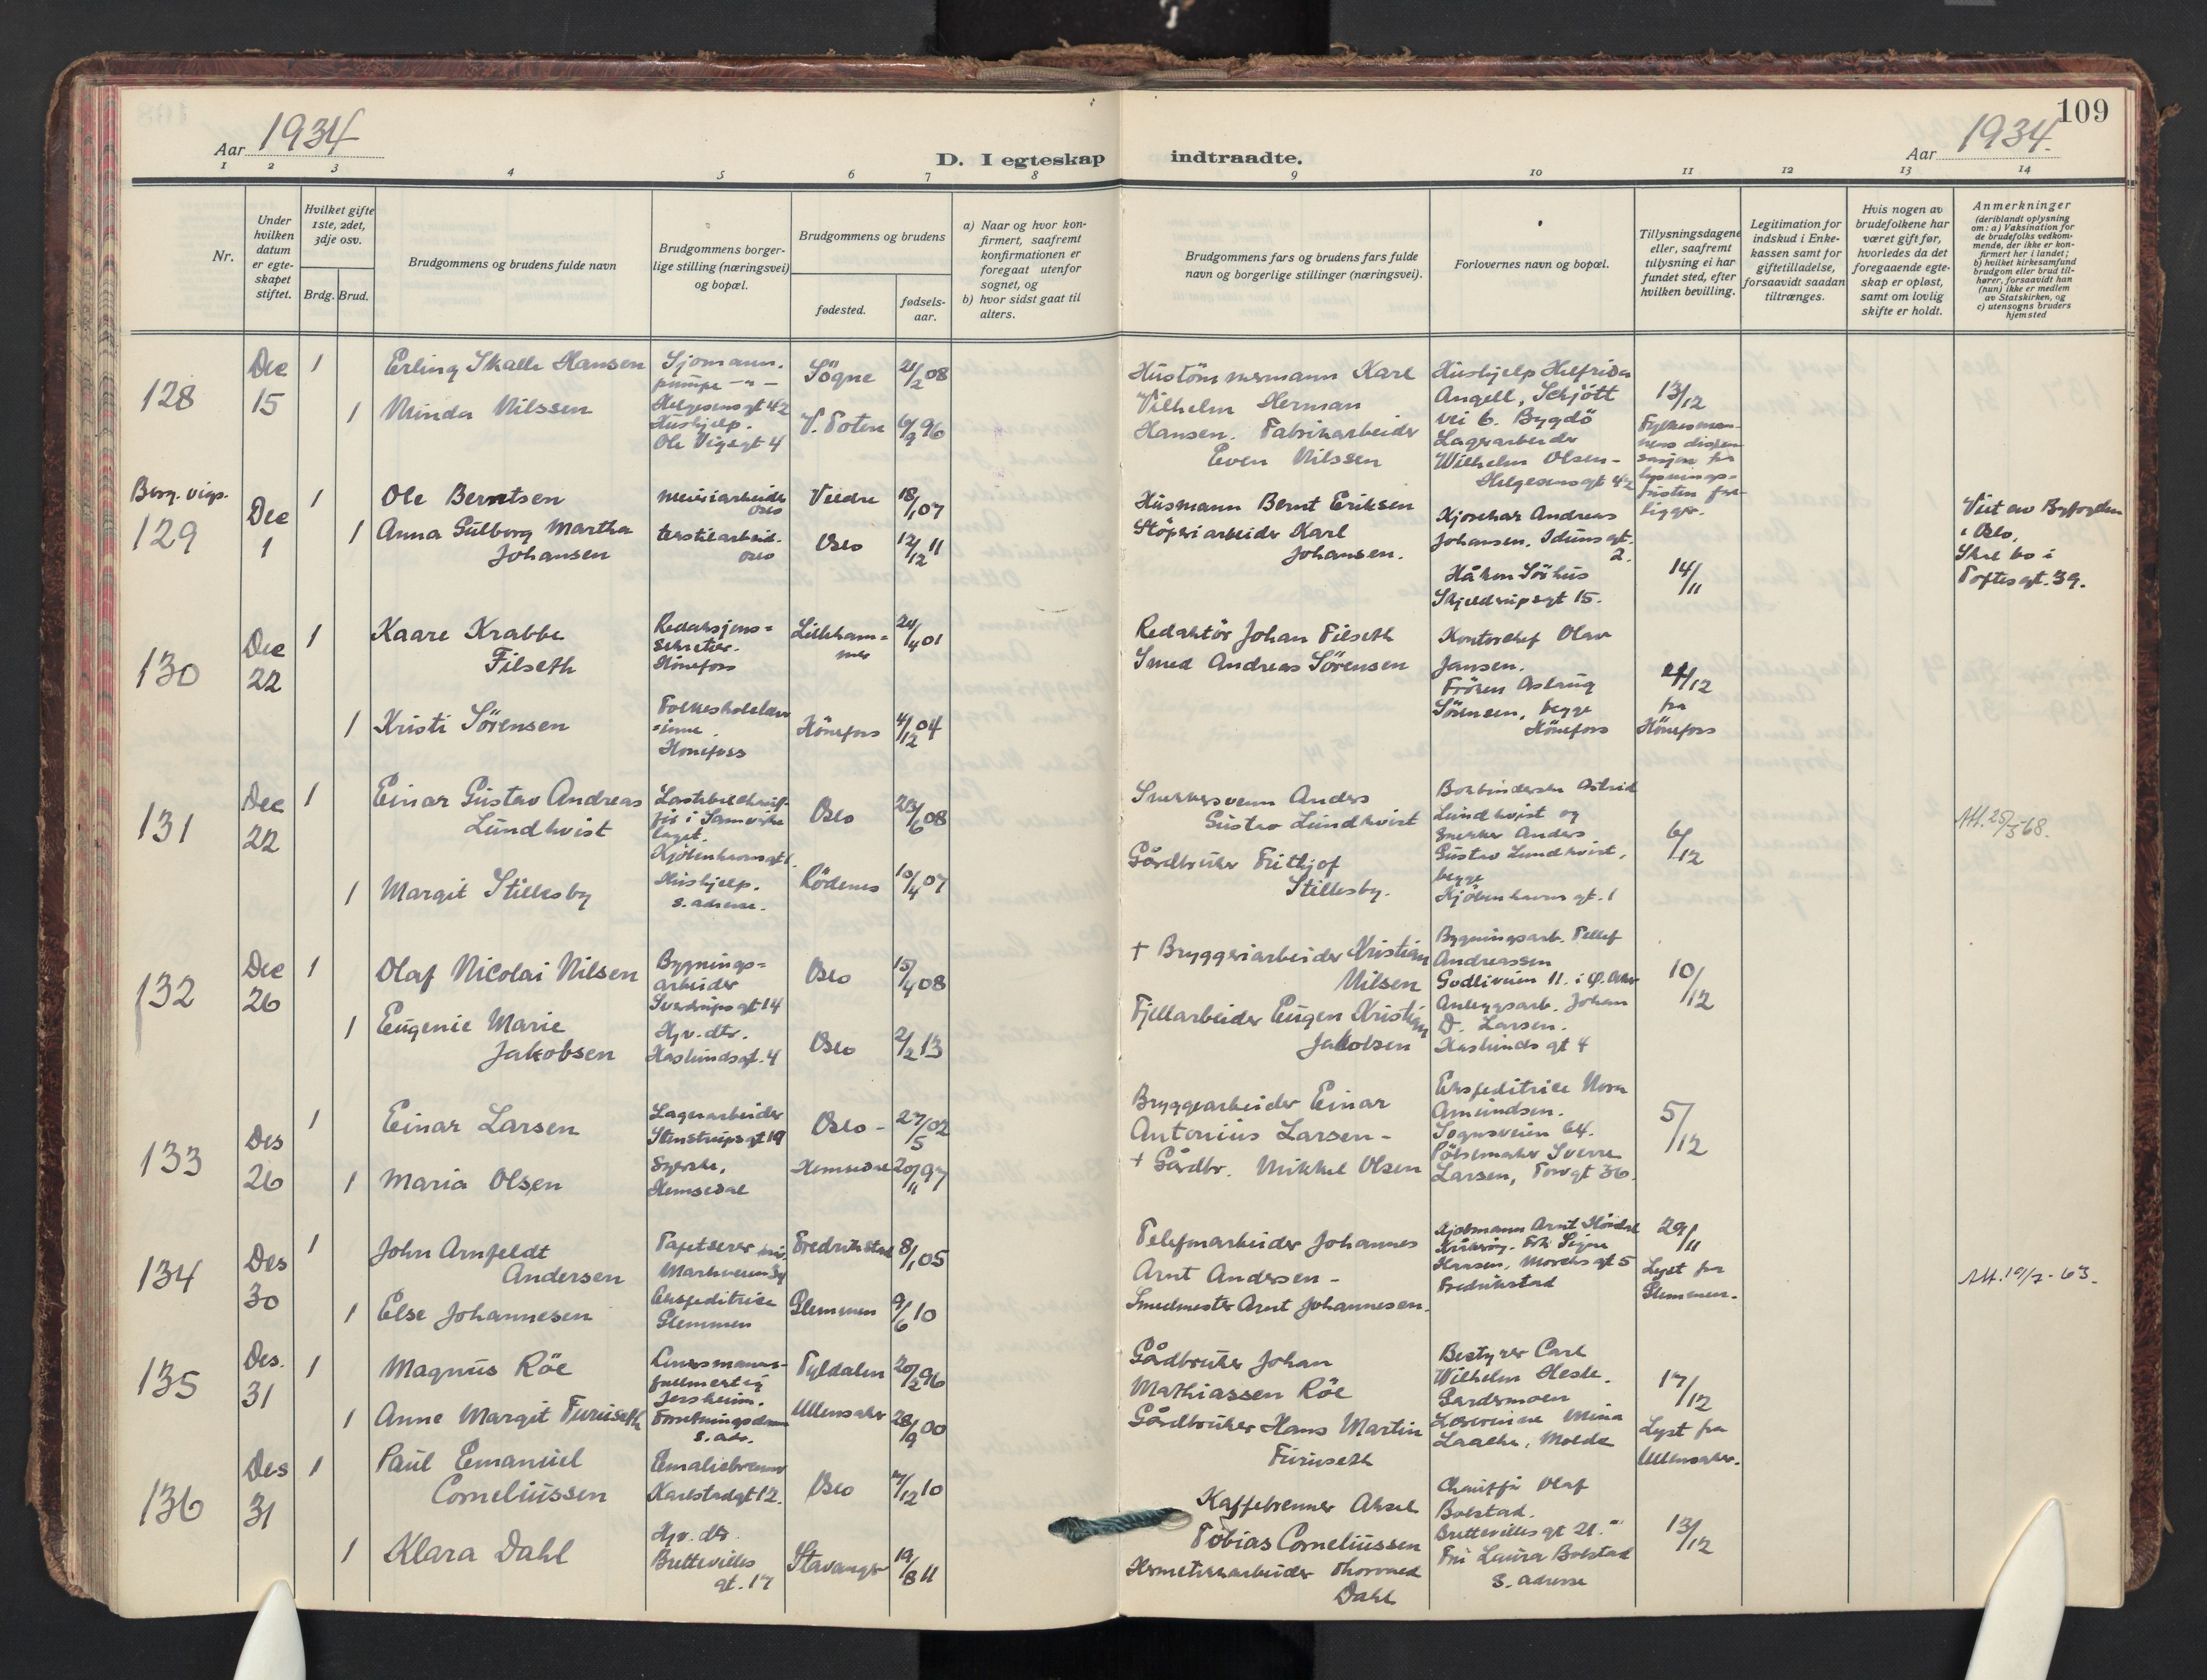 109
Aar 1934
D. I egteskap indtraadte.
Aar 1934.
1 2 3 4 5 6 7 8 9 10 11 12 13 14
Nr.
Under hvilken datum er egte-skapet stiftet.
Hvilket gifte 1ste, 2det, 3dje osv.
Brdg. Brud.
Brudgommens og brudens fulde navn
Brudgommens borger-lige stilling (næringsvei) og bopæl.
Brudgommens og brudens
fødested.
fødsels-aar.
a) Naar og hvor kon-firmert, saafremt konfirmationen er foregaat utenfor sognet, og
b) hvor sidst gaat til alters.
Brudgommens fars og brudens fars fulde navn og borgerlige stillinger (næringsvei).
Forlovernes navn og bopæl.
Tillysningsdagene eller, saafremt tillysning ei har fundet sted, efter hvilken bevilling.
Legitimation for indskud i Enke-kassen samt for giftetilladelse, forsaavidt saadan tiltrænges.
Hvis nogen av brudefolkene har været gift før, hvorledes da det foregaaende egte-skap er opløst, samt om lovlig skifte er holdt.
Anmerkninger
(deriblandt oplysning om: a) Vaksination for de brudefolks vedkom-mende, der ikke er kon-firmert her i landet; b) hvilket kirkesamfund brudgom eller brud til-hører, forsaavidt han (hun) ikke er medlem av Statskirken, og c) utensogns bruders hjemsted
128
Dec 15
1
Erling Skalle Hansen
Sjömann.
Helgesensgt 42
Søgne
21/2 08
1
Minda Nilssen
Hushjelp.
Ole Vigsgt 4
V. Toten
6/9 96
Hustömmermann Karl
Vilhelm Herman
Hansen. Fabrikarbeider
Even Nilssen
Hushjelp Helfrida
Angell, Schjött
vei 6. Bygdö
Lagerarbeider
Wilhelm Olsen -
Helgesensgt 42
13/12
Fylkesman-
nens dispen-
sasjon fra
lysnings-
fristen fore-
ligger.
Borg. vigs.
129
Dec 1
1
Ole Berntsen
meieriarbeider
Oslo
Veldre
18/1 07
1
Anna Gulborg Martha
Johansen
tekstilarbeid.
Oslo
Oslo
12/12 11
Husmann Bernt Eriksen
Støperiarbeider Karl
Johansen.
Kjørekar Andreas
Johansen, Iduns gt.
2.
Håkon Sörhus
Skjeldrupsgt 15.
14/11
Viet av Byfogden
i Oslo.
Skal bo i
Toftesgt. 39.
130
Dec 22
1
Kaare Krabbe
Filseth
Redaksjons=
sekretær.
Hönefoss
Lilleham=
mer
24/4 01
1
Kristi Sørensen
Folkeskolelær
=inne.
Hönefoss
Hönefoss
4/12 04
Redaktør Johan Filseth
Smed Andreas Sørensen
Kontorchef Olav
Jansen.
Fröken Aslaug
Sörensen, begge
Hönefoss
/12
fra
Hönefoss
131
Dec 22
1
Einar Gustav Andreas
Lundkvist
Lastebilchauf-
för i Samvirke
laget.
Kjöbenhavnsgt 1.
Oslo
23/6 08
1
Margit Stillesby
Hushjelp.
s. adresse.
Rödenes
10/4 07
Snekkersvenn Anders
Gustav Lundkvist
Gårdbruker Fritjof
Stillesby.
Bokbinderske Astrid
Lundkvist og
Snekker Anders
Gustav Lundkvist,
begge
Kjöbenhavns gt. 1
6/12
Att. 25/5-68.
132
Dec 26
1
Olaf Nicolai Nilsen
Bygnings=
arbeider
Sverdrups gt 14
Oslo
15/4 08
1
Eugenie Marie
Jakobsen
Hjv. dtr.
Haslundsgt. 4
Oslo
2/2 13
+ Bryggeriarbeider Kristian
Nilsen
Fjellarbeider Eugen Kristian
Jakobsen
Bygningsarb. Tellef
Andreassen
Godliveien 11. i Ø. Aker
Anleggsarb. Johan
D. Larsen.
Haslunds gt 4
10/12
133
Des 26
1
Einar Larsen
Lagerarbeider
Stenstrups gt 19
Oslo -
27/5 02
1
Maria Olsen
Syerske,
Hemsedal
Hemsedal
20/11 97
Bryggearbeider Einar
Antonius Larsen -
+ Gårdbr. Mikkel Olsen
Ekspeditrice Nora
Amundsen.
Sognsveien 64.
Pölsemaker Sverre
Larsen, Torvgt 36.
5/12
134
Des 30
1
John Arnfeldt
Andersen
Tapetserer
Markveien 34
Fredrikstad
8/1 05
1
Else Johannesen
Ekspeditrice
Glemmen
Glemmen
9/6 10
Telefonarbeider Johannes
Arnt Andersen -
Smedmester Arnt Johannesen.
Frk. Signe
Hansen,
Fredrikstad
29/11
Lyst fra
Glemmen.
Att. 19/7-63.
135
Des. 31
1
Magnus Röe
Lensmanns-
fullmektig
Jessheim.
Tyldalen
20/2 96
1
Anne Margit Furuseth
Forretningsdame
s. adr.
Ullensaker
28/9 00
Gårdbruker Johan
Mathiassen Röe
Gårdbruker Hans Martin
Furuseth
Bestyrer Carl
Wilhelm Hesle.
Gardermoen
Lærerinne Mina
Laache, Molde
17/12
Lyst fra
Ullensaker.
136
Des 31
1
Paul Emanuel
Corneliussen
Emaliebrenner
Karlstadgt 12.
Oslo
7/12 10
1
Klara Dahl
Hjv. dtr.
Brettevilles
gt. 17
Stavanger
19/8 11
Kaffebrenner Aksel
Tobias Corneliussen
Hermetikkarbeider Thorvald
Dahl
Chauffør Olaf
Bolstad.
Brettevilles gt 21.
Fru Laura Bolstad
s. adresse
13/12